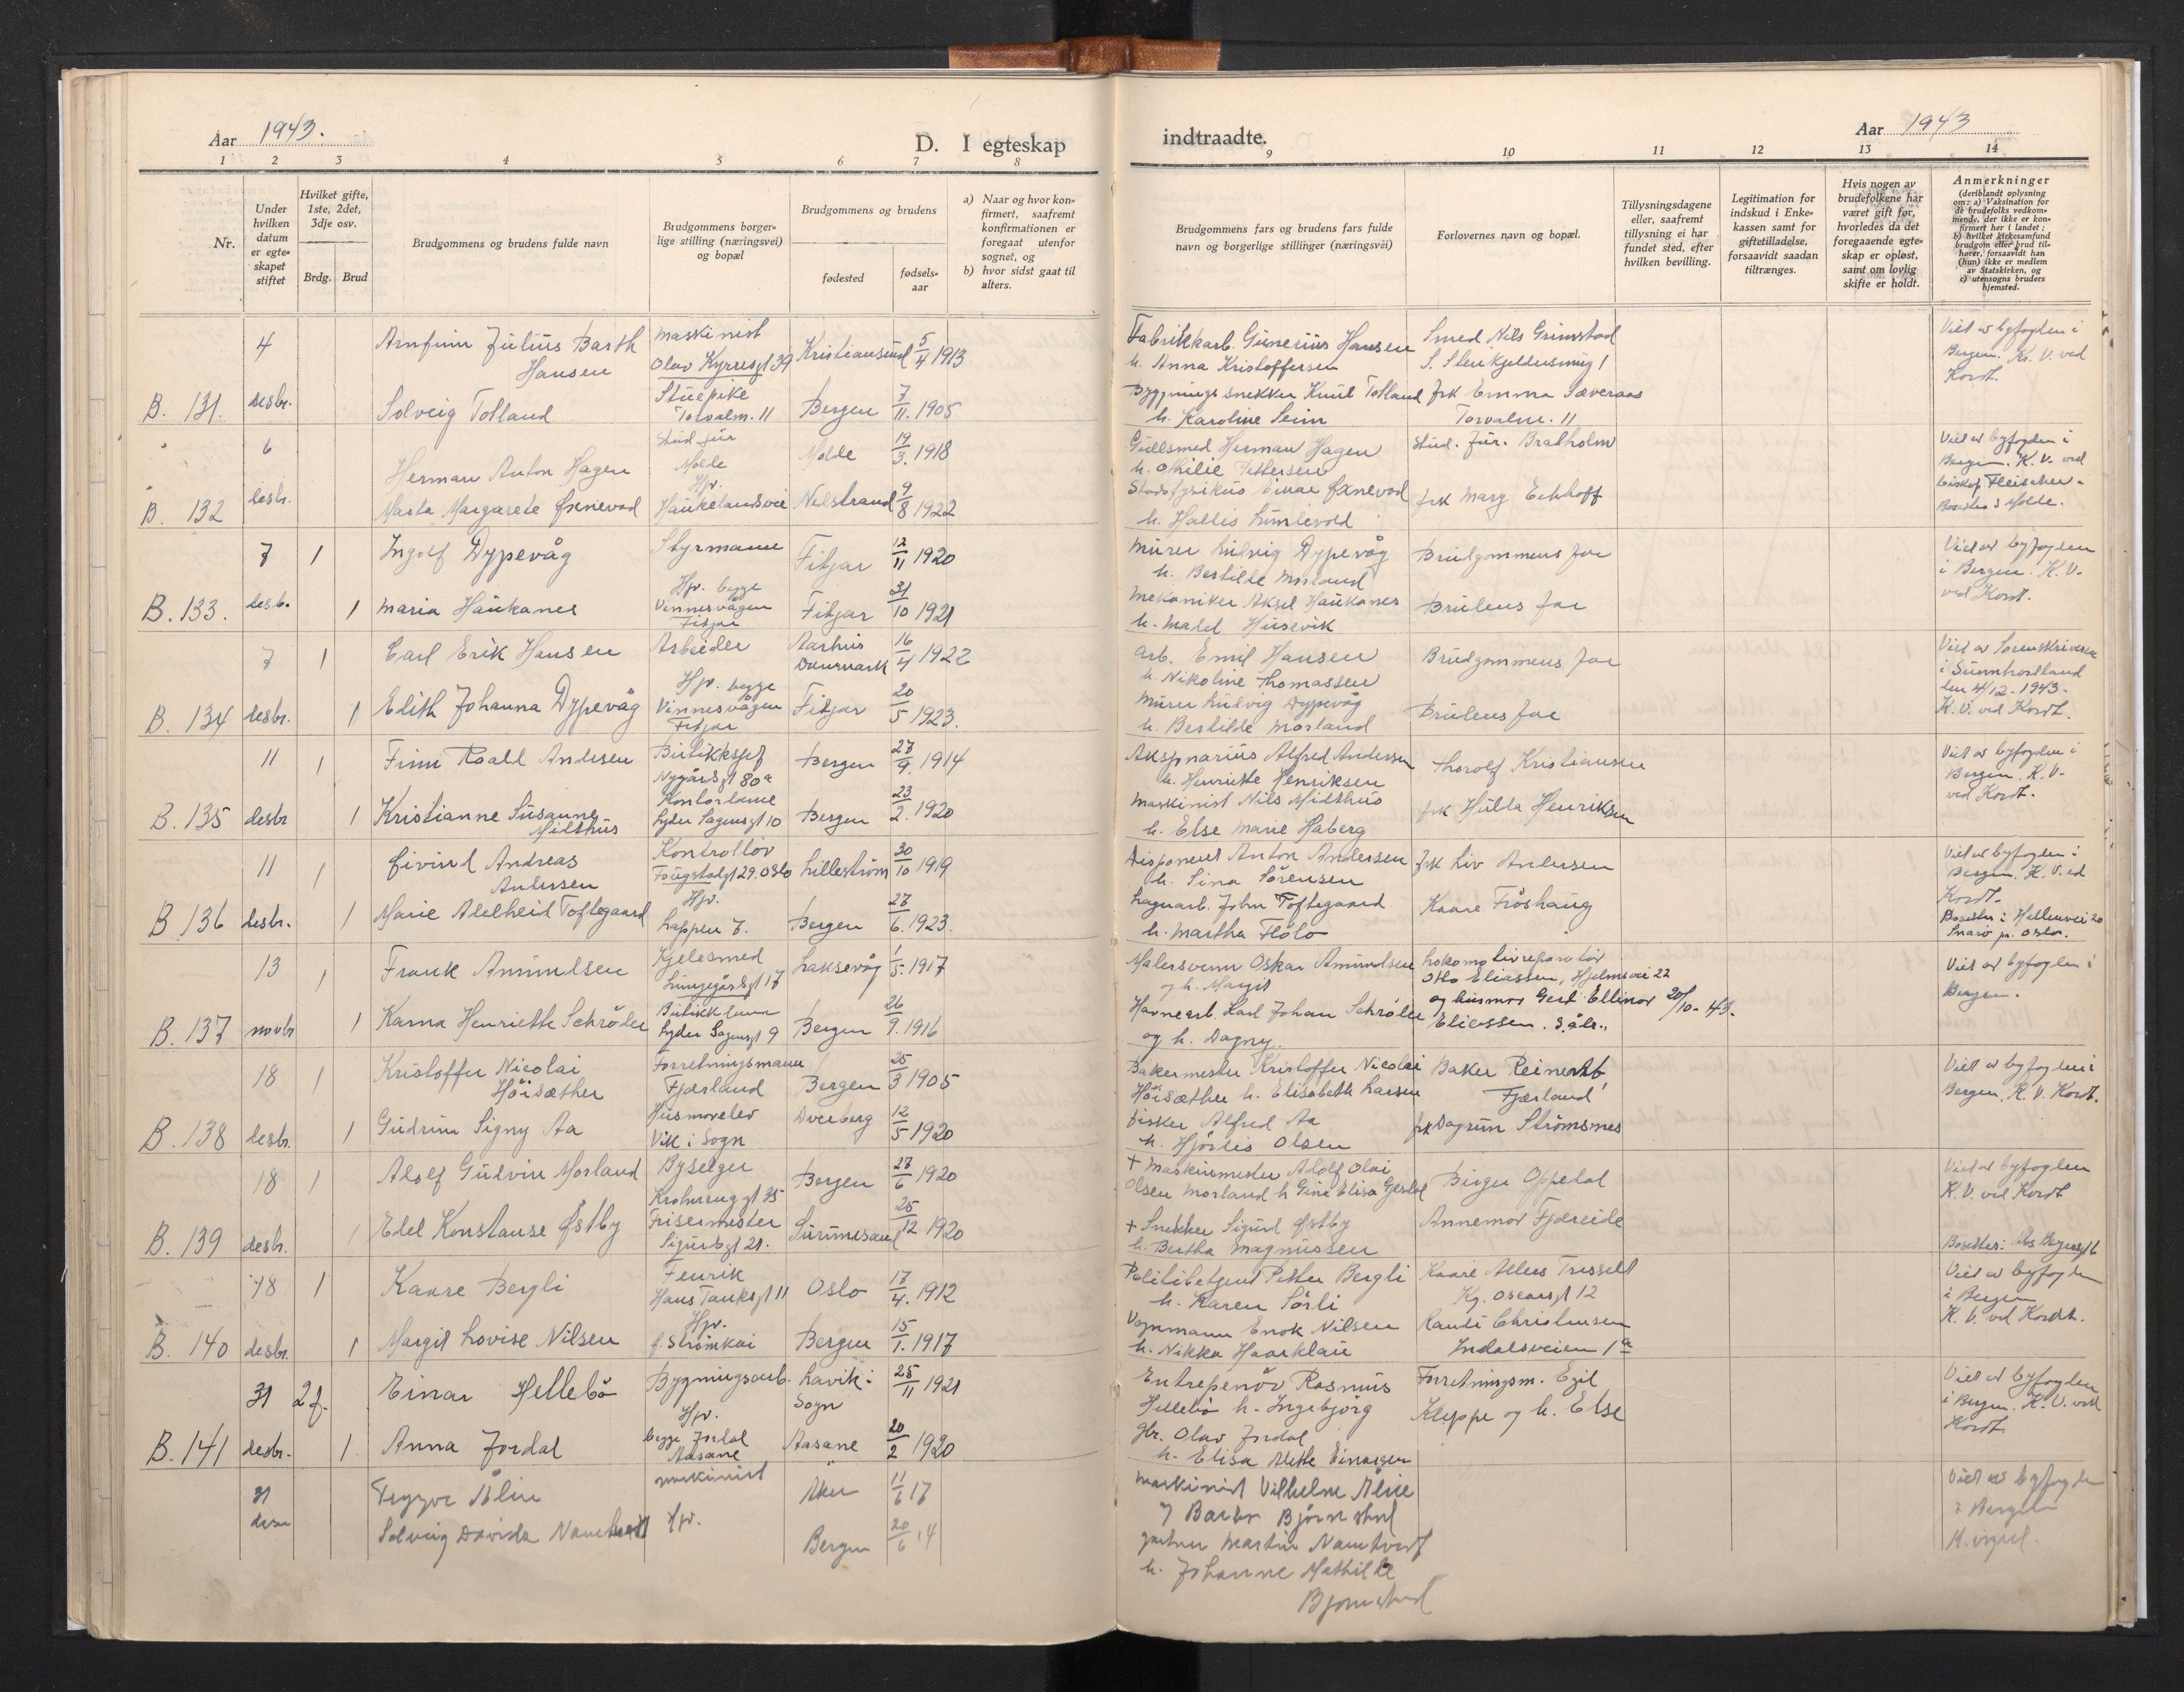 Aar 1943.
D. I egteskap
1 2 3 4 5 6 7 8
Nr.
Under hvilken datum er egte-skapet stiftet
Hvilket gifte, 1ste, 2det, 3dje osv.
Brdg. Brud
Brudgommens og brudens fulde navn
Brudgommens borger-lige stilling (næringsvei) og bopæl
Brudgommens og brudens
fødested
fødsels-aar
a) Naar og hvor kon-firmert, saafremt konfirmationen er foregaat utenfor sognet, og
b) hvor sidst gaat til alters.
B. 131. 4 desbr.
Arnfinn Julius Barth Hansen
Maskinist Olav Kyrresgt 39
Kristiansund 5/4 1913
Solveig Tolland
Stuepike Torvalm. 11
Bergen 7/11. 1905
B. 132 6 desbr.
Herman Anton Hagen
Stud jur Molde
Molde 19/3. 1918
Marta Margarete Øxnevad
Hjv. Haukelandsvei
9/8 1922
B. 133. 7 desb. 1
Ingolf Dypevåg
Styrmann
Fitjar 12/11 1920
1 Maria Haukanes
Hjv. begge Vinnesvågen Fitjar
Fitjar 31/10 1921
B. 134 7 desbr. 1
Carl Erik Hansen
Arbeider
Aarhus Danmark 16/4 1922
1 Edith Johanna Dypevåg
Hjv. begge Vinnesvågen Fitjar
Fitjar 20/5 1923.
B. 135 11 desbr 1
Finn Roald Andersen
Butikksjef Nygårdsgt 80a
Bergen 27/9. 1914
1 Kristianne Susanne Midthus
Kontordame Lyder Sagensgt 10
Bergen 23/2. 1920
B 136 11 desbr. 1
Eivind Andreas Andersen
Kontrollør Fougstadgt 29. Oslo
Lilleström 30/10 1919
1 Marie Adelheid Toftegaard
Hjv. Lappen 7.
Bergen 27/6. 1923.
B. 137 13 novbr 1
Frank Amundsen
Kjelesmed Lungegårdsgt 17
Laksevåg 1/5. 1917
1 Karna Henriette Schrøder
Butikkdame Lyder Sagensgt 9
Bergen 26/9. 1916
B. 138 18 desbr. 1
Kristoffer Nicolai Höisæther
Forretningsmann Fjærland
Bergen 25/3 1905
1 Gudrun Signy Aa
Husmorelev Vik i Sogn
Dverberg 12/5 1920
B. 139 18 desbr. 1
Adolf Gudvin Morland
Byselger Krohnenggt 35
Bergen 27/6 1920
1 Edel Konstanse Østby
Frisermester Sigurdsgt 21.
25/12 1920
B. 140 18 desbr. 1
Kaare Bergli
Fenrik Hans Tanksgt 11
Oslo 17/4. 1912
1 Margit Lovise Nilsen
Hjv. d. Strömkai
Bergen 15/1. 1917
B. 141 31 desbr. 2 f.
Einar Hellebö
Bygningsarb.
Lavik i Sogn 25/11 1921
1. Anna Jordal
Hjv. begge Jordal Aasane
Aasane 20/2 1920
31 desbr
Tryggve Ålin
maskinist
Aker 11/6 17
Solveig Davida Namtvedt
Hjv.
Bergen 20/6 14
indtraadte.
Aar 1943
9 10 11 12 13 14
Brudgommens fars og brudens fars fulde navn og borgerlige stillinger (næringsvei)
Forlovernes navn og bopæl.
Tillysningsdagene eller, saafremt tillysning ei har fundet sted, efter hvilken bevilling.
Legitimation for indskud i Enke-kassen samt for giftetilladelse, forsaavidt saadan tiltrænges.
Hvis nogen av brudefolkene har været gift før, hvorledes da det foregaaende egte-skap er opløst, samt om lovlig skifte er holdt.
Anmerkninger (deriblandt oplysning om: a) Vaksination for de brudefolks vedkom-mende, der ikke er kon-firmert her i landet; b) hvilket kirkesamfund brudgom eller brud til-hører, forsaavidt han (hun) ikke er medlem av Statskirken, og c) utensogns bruders hjemsted.
Fabrikkarb. Gunerius Hansen
h. Anna Kristoffersen
Smed Nils Grimstad
S. Steinkjellersmug 1
Viet av byfogden i Bergen. K. V. ved Kordt.
Bygningssnekker Knut Tolland
h. Karoline Seim
frk Emma Sæveraas
Torvalm. 11
Gullsmed Herman Hagen
h. Othilie Pettersen
Stud. Jur. Bratholm
Viet av byfogden i Bergen. K. V. ved biskop Fleischer.
Bosettes i Molde.
Stadsfysikus Einar Øxnevad
h. Hallis
frk Marg Eckhoff
Murer Ludvig Dypevåg
h. Bertilde Morland
Brudgommens far
Viet av byfogden i Bergen. K. V. ved Kordt.
Mekaniker Aksel Haukanes
h. Malel Husevik
Brudens far
Arb. Emil Hansen
h. Nikoline Thomassen
Brudgommens far
Viet av Sorenskriveren i Sunnhordland den 4/12-1943. K. V. ved Kordt.
Murer Ludvig Dypevåg
h. Bertilde Morland
Brudens far
Alfred Andersen
h. Henriette Henriksen
Thorolf Kristiansen
Viet av byfogden i Bergen. K. V. ved Kordt.
Maskinist Nils Midthus
h. Else Marie Haberg
frk Hulda Henriksen
Disponent Anton Andersen
h. Sina Sörensen
frk Liv Andersen
Viet av byfogden i Bergen. K. V. ved Kordt.
Lagerarb. John Toftegaard
h. Martha Flölo
Kaare Fröshaug
Bosettes i Hellenvei 20 Snarö pr. Oslo.
Malersvenn Oskar Amundsen
og h. Margit
Lokomotivreparatör
Otto Eliassen, Hjelmsvei 22
og husmor Gerd Ellinor Eliassen. s. åk. 20/10-43.
Viet av byfogden i Bergen.
Havnearb. Karl Johan Schrøder
og h. Dagny.
Bakermester Kristoffer Nicolai
Höisæther h. Elisabeth Larsen
Baker Fjærland
Viet av byfogden i Bergen. K. V. Kordt.
Fisker Alfred Aa
h. Hjördis Olsen
frk Dagrun Strömsnes
+ Maskinmester Adolf Olai
Olsen Morland h Gina Elisa
Birger Oppedal
Viet av byfogden K. V. ved Kordt
+ Snekker Sigurd Østby
h. Bertha Magnussen
Annemor Fjæreide
Politibetjent Petter Bergli
h. Karen Sörli
Kaare
Kg. Oscarsgt 12
Viet av byfogden i Bergen K. V. ved Kordt.
Vognmann Enok Nilsen
h. Nikka Haarklau
Randi Christensen
Indalsveien 1a
Entrepenör Rasmus
Hellebö h. Ingebjörg
Forretningsm. Egil
Kleppe og h. Else
Viet av byfogden i Bergen. K. V. ved Kordt.
Gbr. Olav Jordal
h. Elisa Mette Einarsen
Maskinist Vilhelm Ålin
Viet av byfogden i Bergen
Martin Namtvedt
h. Johanne Mathilde